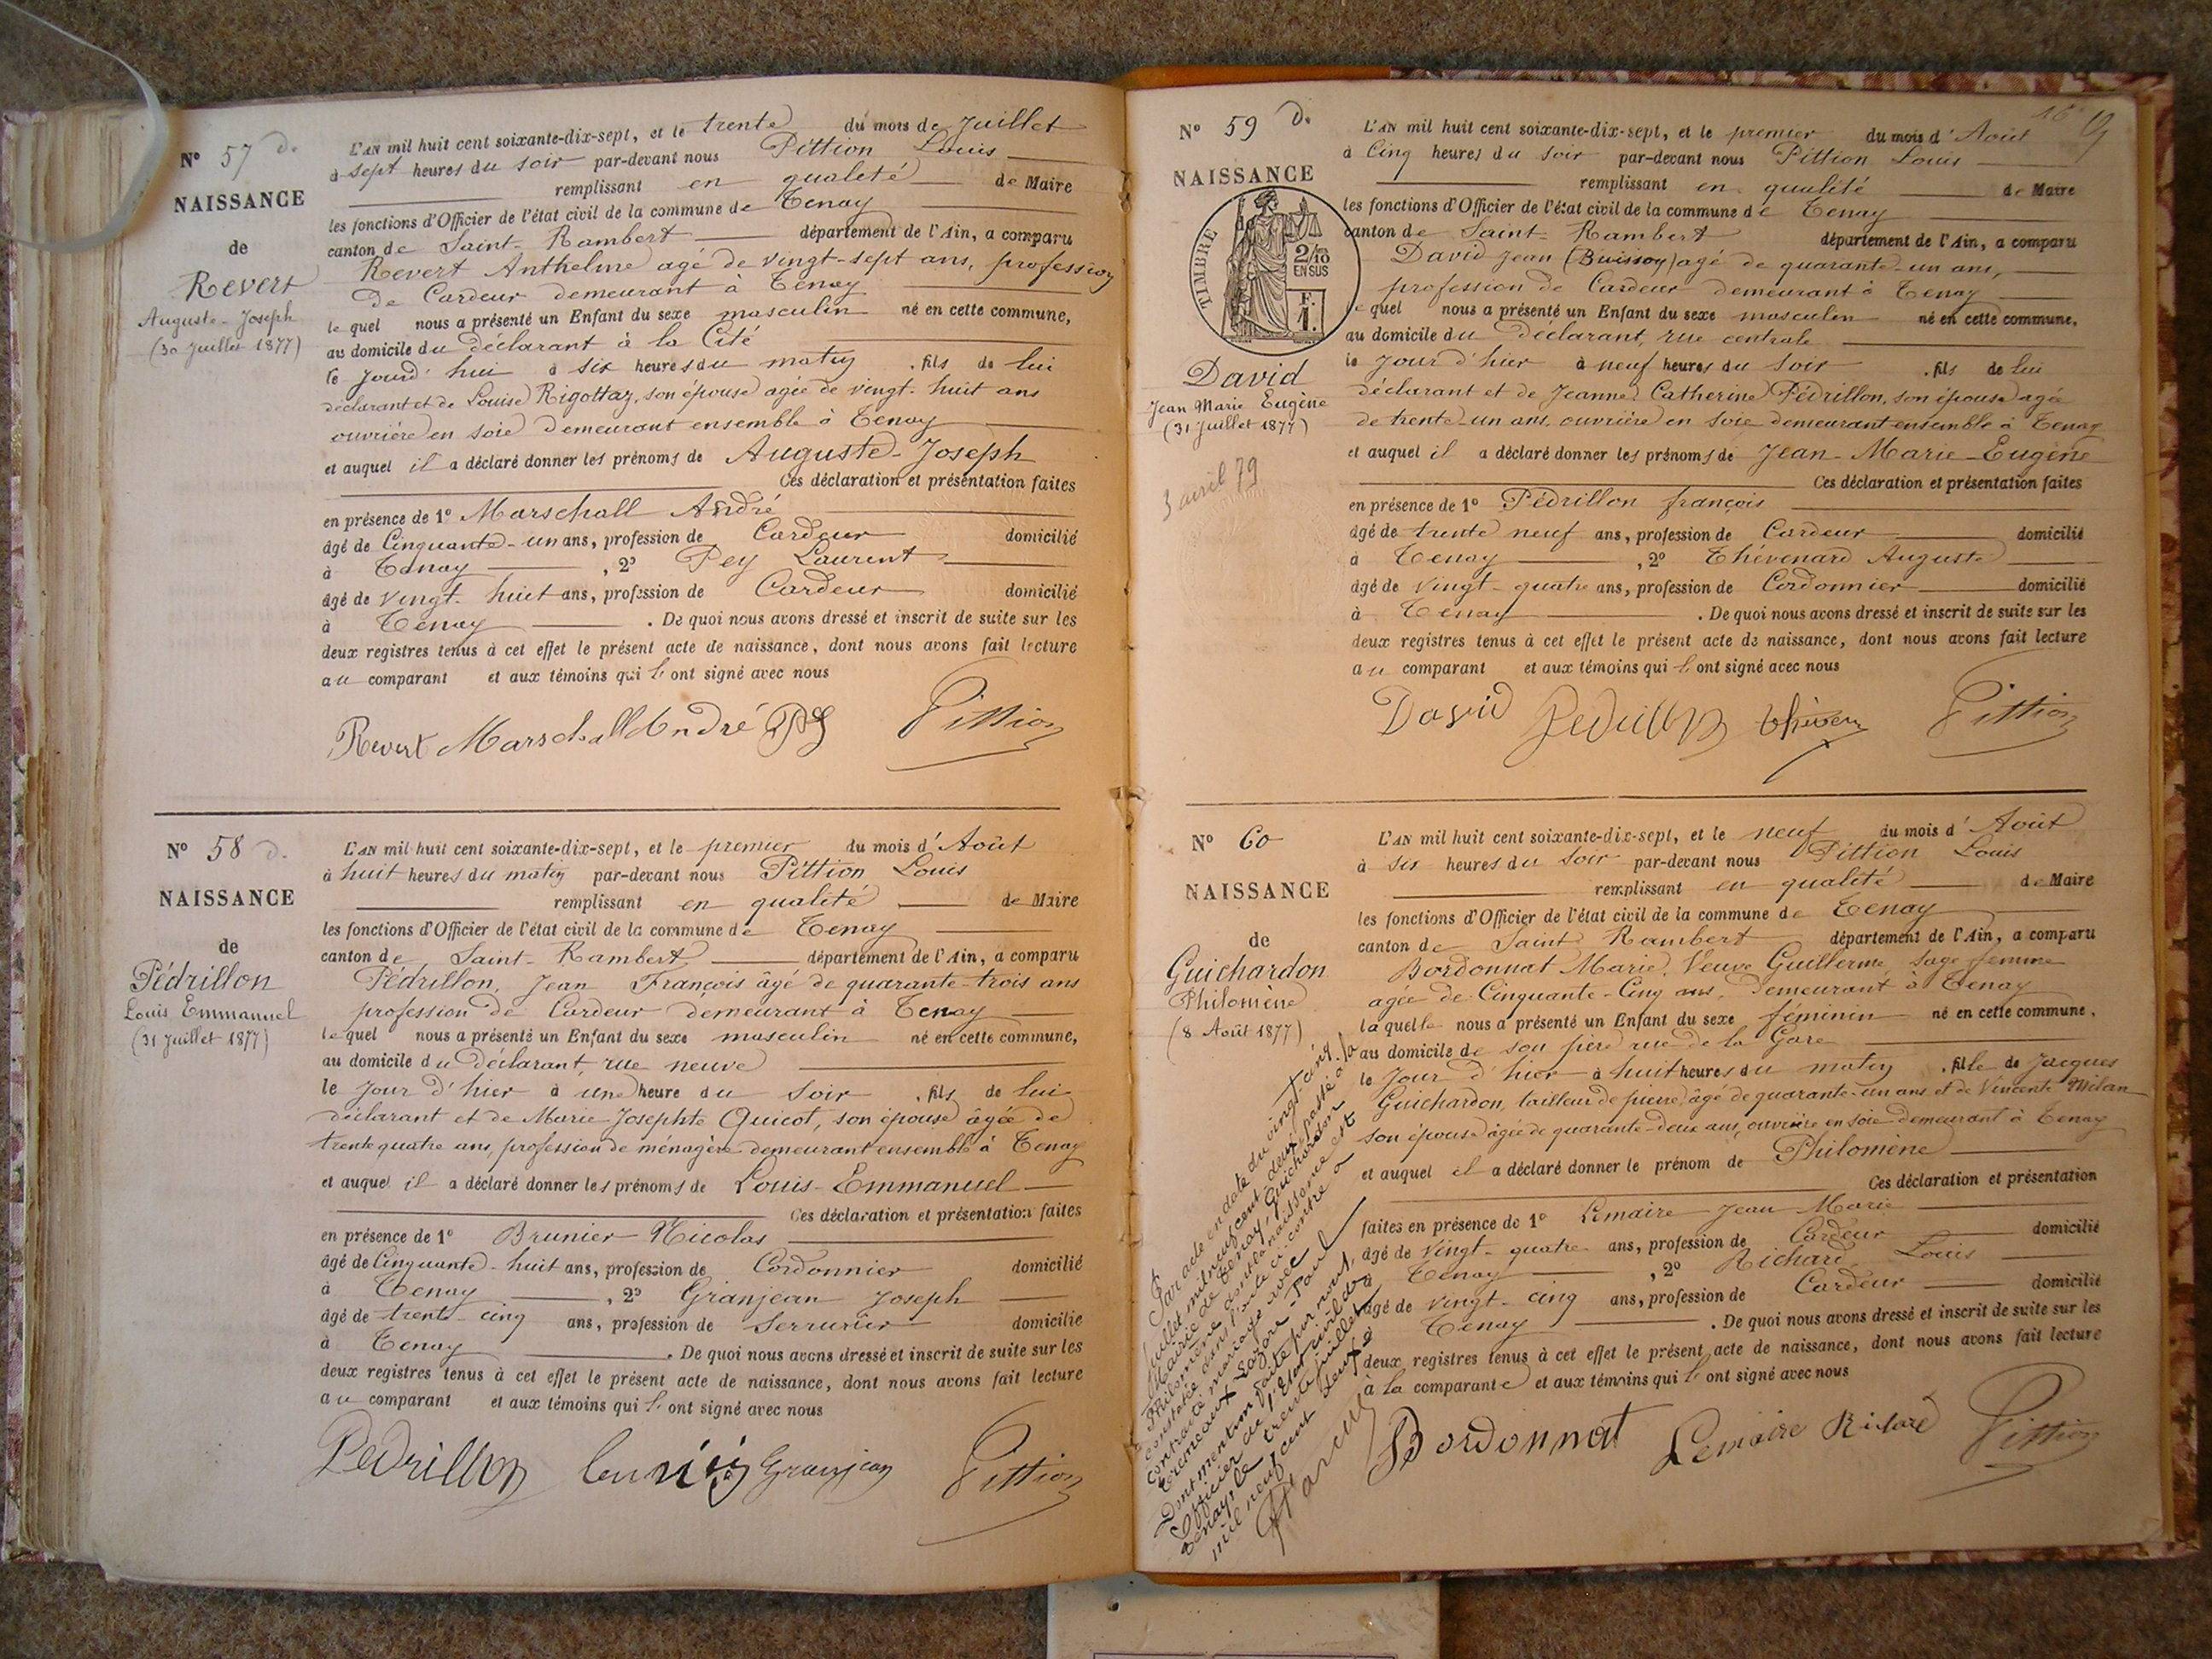 N° 57 d.
NAISSANCE
de
Revert
Auguste-Joseph
(30 Juillet 1877)
L'AN mil huit cent soixante-dix-sept, et le trente du mois de Juillet
à sept heures du soir par-devant nous Pittion Louis
remplissant en qualité de Maire
les fonctions d'Officier de l'état civil de la commune de Tenay
canton de Saint-Rambert département de l'Ain, a comparu
Revert Anthelme agé de vingt-sept ans, profession
de Cardeur demeurant à Tenay
le quel nous a présenté un Enfant du sexe masculin né en cette commune,
au domicile du déclarant à la Cité
le jourd'hui à six heures du matin , fils de lui
déclarant et de Louise Rigottaz, son épouse agée de vingt-huit ans
ouvrière en soie demeurant ensemble à Tenay
et auquel il a déclaré donner les prénoms de Auguste-Joseph
Ces déclaration et présentation faites
en présence de 1° Marschall André
âgé de Cinquante-un ans, profession de Cardeur domicilié
à Tenay , 2° Pey Laurent
âgé de vingt-huit ans, profession de Cardeur domicilié
à Tenay . De quoi nous avons dressé et inscrit de suite sur les
deux registres tenus à cet effet le présent acte de naissance, dont nous avons fait lecture
au comparant et aux témoins qui l' ont signé avec nous
Revert Marschall André Pittion
N° 58 d.
NAISSANCE
de
Pédrillon
Louis Emmanuel
(31 Juillet 1877)
L'AN mil huit cent soixante-dix-sept, et le premier du mois d'Août
à huit heures du matin par-devant nous Pittion Louis
remplissant en qualité de Maire
les fonctions d'Officier de l'état civil de la commune de Tenay
canton de Saint-Rambert département de l'Ain, a comparu
Pédrillon, Jean François âgé de quarante-trois ans
profession de Cardeur demeurant à Tenay
le quel nous a présenté un Enfant du sexe masculin né en cette commune,
au domicile du déclarant, rue neuve
le jour d'hier à une heure du soir , fils de lui
déclarant et de Marie Josephte Quicot, son épouse âgée de
trente quatre ans, profession de ménagère demeurant ensemble à Tenay
et auquel il a déclaré donner les prénoms de Louis-Emmanuel
Ces déclaration et présentation faites
en présence de 1° Brunier Nicolas
âgé de Cinquante-huit ans, profession de Cordonnier domicilié
à Tenay , 2° Granjean Joseph
âgé de trente-cinq ans, profession de Serrurier domicilié
à Tenay . De quoi nous avons dressé et inscrit de suite sur les
deux registres tenus à cet effet le présent acte de naissance, dont nous avons fait lecture
au comparant et aux témoins qui l' ont signé avec nous
Pedrillon Granjean Pittion
N° 59 d.
NAISSANCE
TIMBRE
2/10
EN SUS
F.
1.
David
Jean Marie Eugène
(31 Juillet 1877)
3 avril 79
L'AN mil huit cent soixante-dix-sept, et le premier du mois d'Août
à Cinq heures du soir par-devant nous Pittion Louis
remplissant en qualité de Maire
les fonctions d'Officier de l'état civil de la commune de Tenay
canton de Saint-Rambert département de l'Ain, a comparu
David Jean (Buisson) agé de quarante-un ans,
profession de Cardeur demeurant à Tenay
le quel nous a présenté un Enfant du sexe masculin né en cette commune,
au domicile du déclarant, rue centrale
le jour d'hier à neuf heures du soir , fils de lui
déclarant et de Jeanne Catherine Pédrillon, son épouse agée
de trente-un ans, ouvrière en soie demeurant ensemble à Tenay
et auquel il a déclaré donner les prénoms de Jean-Marie-Eugène
Ces déclaration et présentation faites
en présence de 1° Pédrillon françois
âgé de trente neuf ans, profession de Cardeur domicilié
à Tenay , 2° Thévenard Auguste
âgé de vingt-quatre ans, profession de Cordonnier domicilié
à Tenay . De quoi nous avons dressé et inscrit de suite sur les
deux registres tenus à cet effet le présent acte de naissance, dont nous avons fait lecture
au comparant et aux témoins qui l' ont signé avec nous
David Pedrillon Pittion
N° 60
NAISSANCE
de
Guichardon
Philomène
(8 Août 1877)
L'AN mil huit cent soixante-dix-sept, et le neuf du mois d'Août
à six heures du soir par-devant nous Pittion Louis
remplissant en qualité de Maire
les fonctions d'Officier de l'état civil de la commune de Tenay
canton de Saint Rambert département de l'Ain, a comparu
Bordonnat Marie, Veuve Guillerme, sage femme
agée de Cinquante-Cinq ans, demeurant à Tenay
la quelle nous a présenté un Enfant du sexe féminin né en cette commune,
au domicile de son père rue de la Gare
le jour d'hier à huit heures du matin , fille de Jacques
Guichardon, tailleur de pierre, âgé de quarante-un ans et de Vincente Milan
son épouse âgée de quarante-deux ans, ouvrière en soie demeurant à Tenay
et auquel il a déclaré donner le prénom de Philomène
Ces déclaration et présentation
faites en présence de 1° Lemaire Jean Marie
âgé de vingt-quatre ans, profession de Cardeur domicilié
à Tenay , 2° Richard Louis
âgé de vingt-cinq ans, profession de Cardeur domicilié
à Tenay . De quoi nous avons dressé et inscrit de suite sur les
deux registres tenus à cet effet le présent acte de naissance, dont nous avons fait lecture
à la comparante et aux témoins qui l' ont signé avec nous
Bordonnat Lemaire Richard Pittion
Par acte en date du vingt cinq
juillet mil neuf cent deux, passé à la
Mairie de Tenay, Guichardon
Philomène dont la naissance est
constatée dans l'acte ci-contre a
contracté mariage avec
Lazare-Paul
Dont mention faite par nous,
Officier de l'Etat civil de
Tenay, le trente juillet
mil neuf cent deux